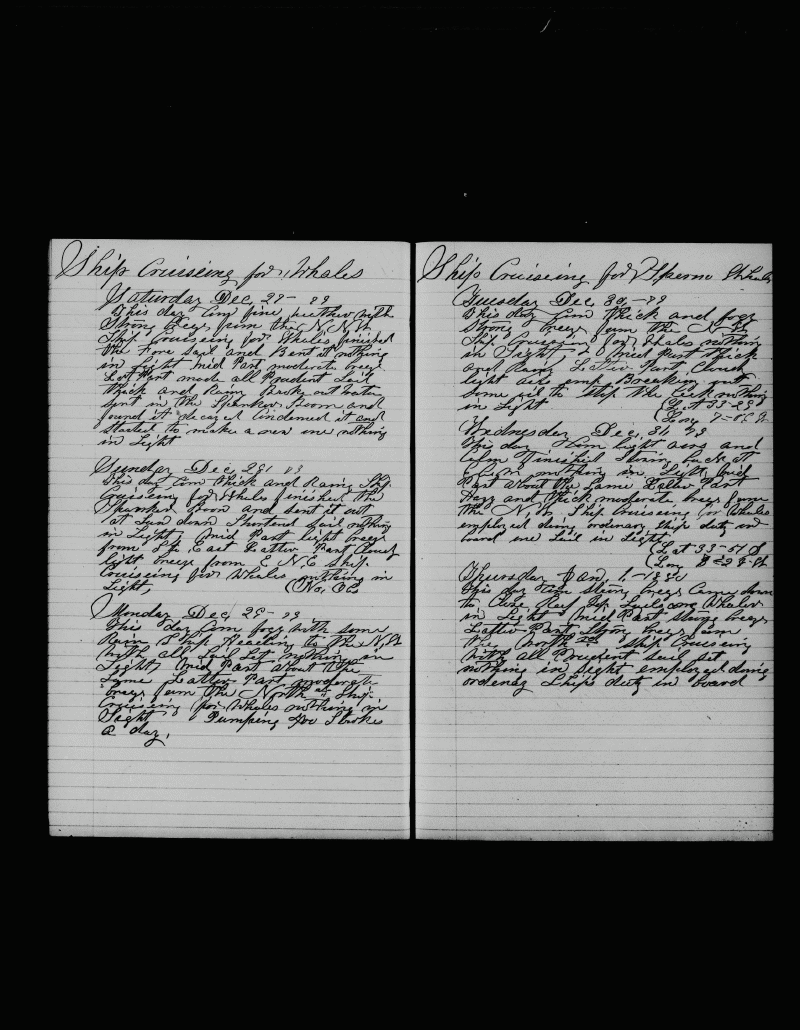 Ship Cruiseing for Whales
Saturday Dec, 27-
this day Com fine, weather with
Strong Breze from the N. N. W.
Ship Cruiseing for Whales finished
the Fore sail and Bent it nothing
in Sight Mid Part moderate breze
Lat Part made all Prudent Sail
thick and Rainy
sent in the Spanker Boom and
found it decayed Condemed it and
started to make a new one nothing
in Sight
Sunday Dec, 28,
this day Com thick and Rainy Ship
Cruiseing for Whales finished the
Spanker Boom and sent it out
at Sun down Shortend Sail nothing
in Sight Mid Part light breze
from S. East Latter Part Cloudy
light breze from E N. E Ship
Cruiseing for Whales nothing in
Sight, (No, Obs
Monday Dec, 29-
this day Com fogg with some
Rain Ship Heading to the N. W
with all Sail Set nothing in
Sight, Mid Part about the
Same Latter Part moderate
breze from the North Ship
Cruiseing for Whales nothing in
Sight Pumping 400 Strokes
a day,
Ship Cruiseing for Sperm Whales
Tuesday Dec, 30,-
this day Com thick and fogg
Strong breze from the N-W
Ship Cruiseing for Whales nothing
in Sight Mid Part thick
and Rainy Latter Part Cloudy
light airs emp Breaking out
some oil to stop the Leek nothing
in Sight (Lat 33-
(Lon
Wednesday Dec, 31,
this day Com light airs and
Calm finished
nothing in Sight, Mid
Part about the Same Latter Part
Hazy and thick moderate breze from
the N. W. Ship Cruiseing for Whales
employed doing ordenary Ship duty on
board one Sail in Sight
(Lat 33-57 S
(Lon
Thursday Jan, 1,-
this day Com Strong breze Came down
to Close Reef Top Sails no Whales
in Sight Mid Part Strong breze
Latter Part Strong breze from
the North Ship Cruiseing
with all Prudent Sail set
nothing in Sight employed doing
ordenary Ships duty on board